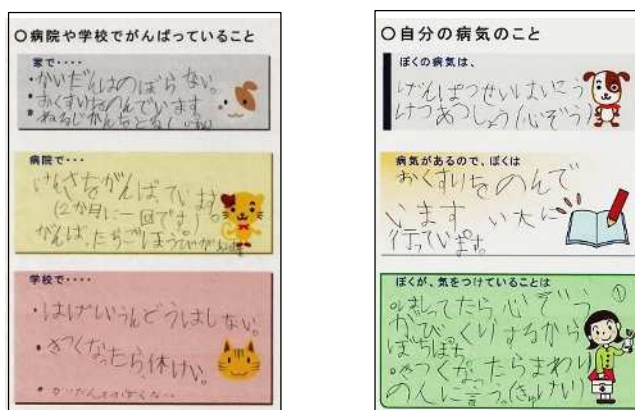 ○病院や学校でがんばっていること
家で・・・・
・かいだんはのぼらない。
・おくすりをのんでいます
・ねるじかんをとる
病院で・・・・
けんさをがんばっています
(2か月に一回です)
がんばったらごほうびが
学校で・・・・
・はげしいうんどうはしない。
・きつくなったら休けい。
○自分の病気のこと
ぼくの病気は、
げんぱつせいはいこう
けつあつしょう(心ぞう)
病気があるので、ぼくは
おくすりをのんで
います い大に
行っています。
ぼくが、気をつけていることは
①
・はしってたら心ぞう
がびっくりするから
ぼちぼち
・きつくなったらまわり
の人に言う。(きゅけい)